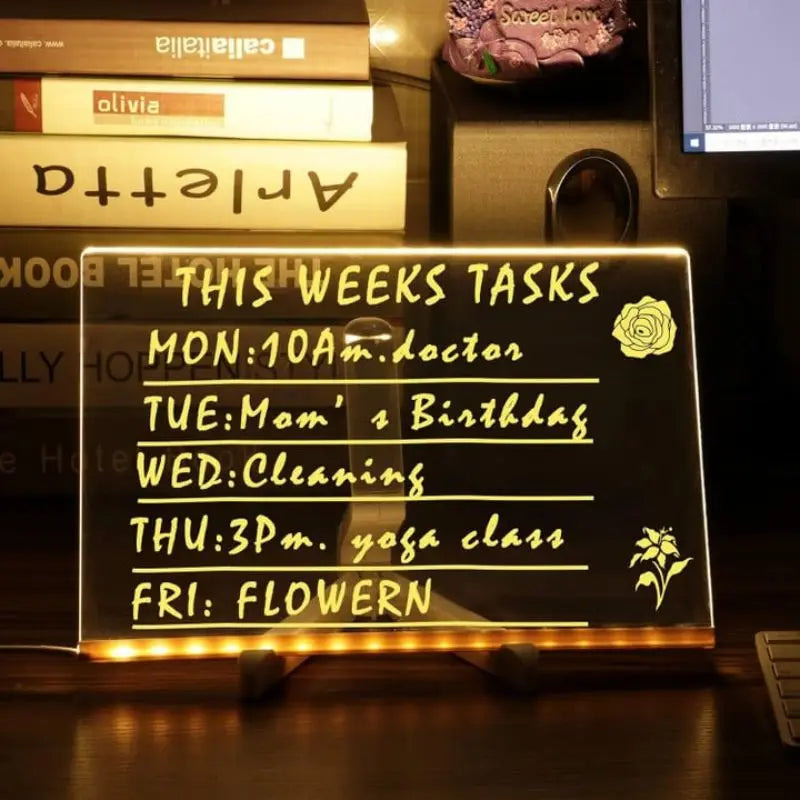 www.caliaitalia.com
caliaitalia
olivia
Arletta
THE HOTEL BOOK
Sweet Love
THIS WEEKS TASKS
MON:10Am.doctor
TUE:Mom's Birthday
WED:Cleaning
THU:3Pm. yoga class
FRI: FLOWERN